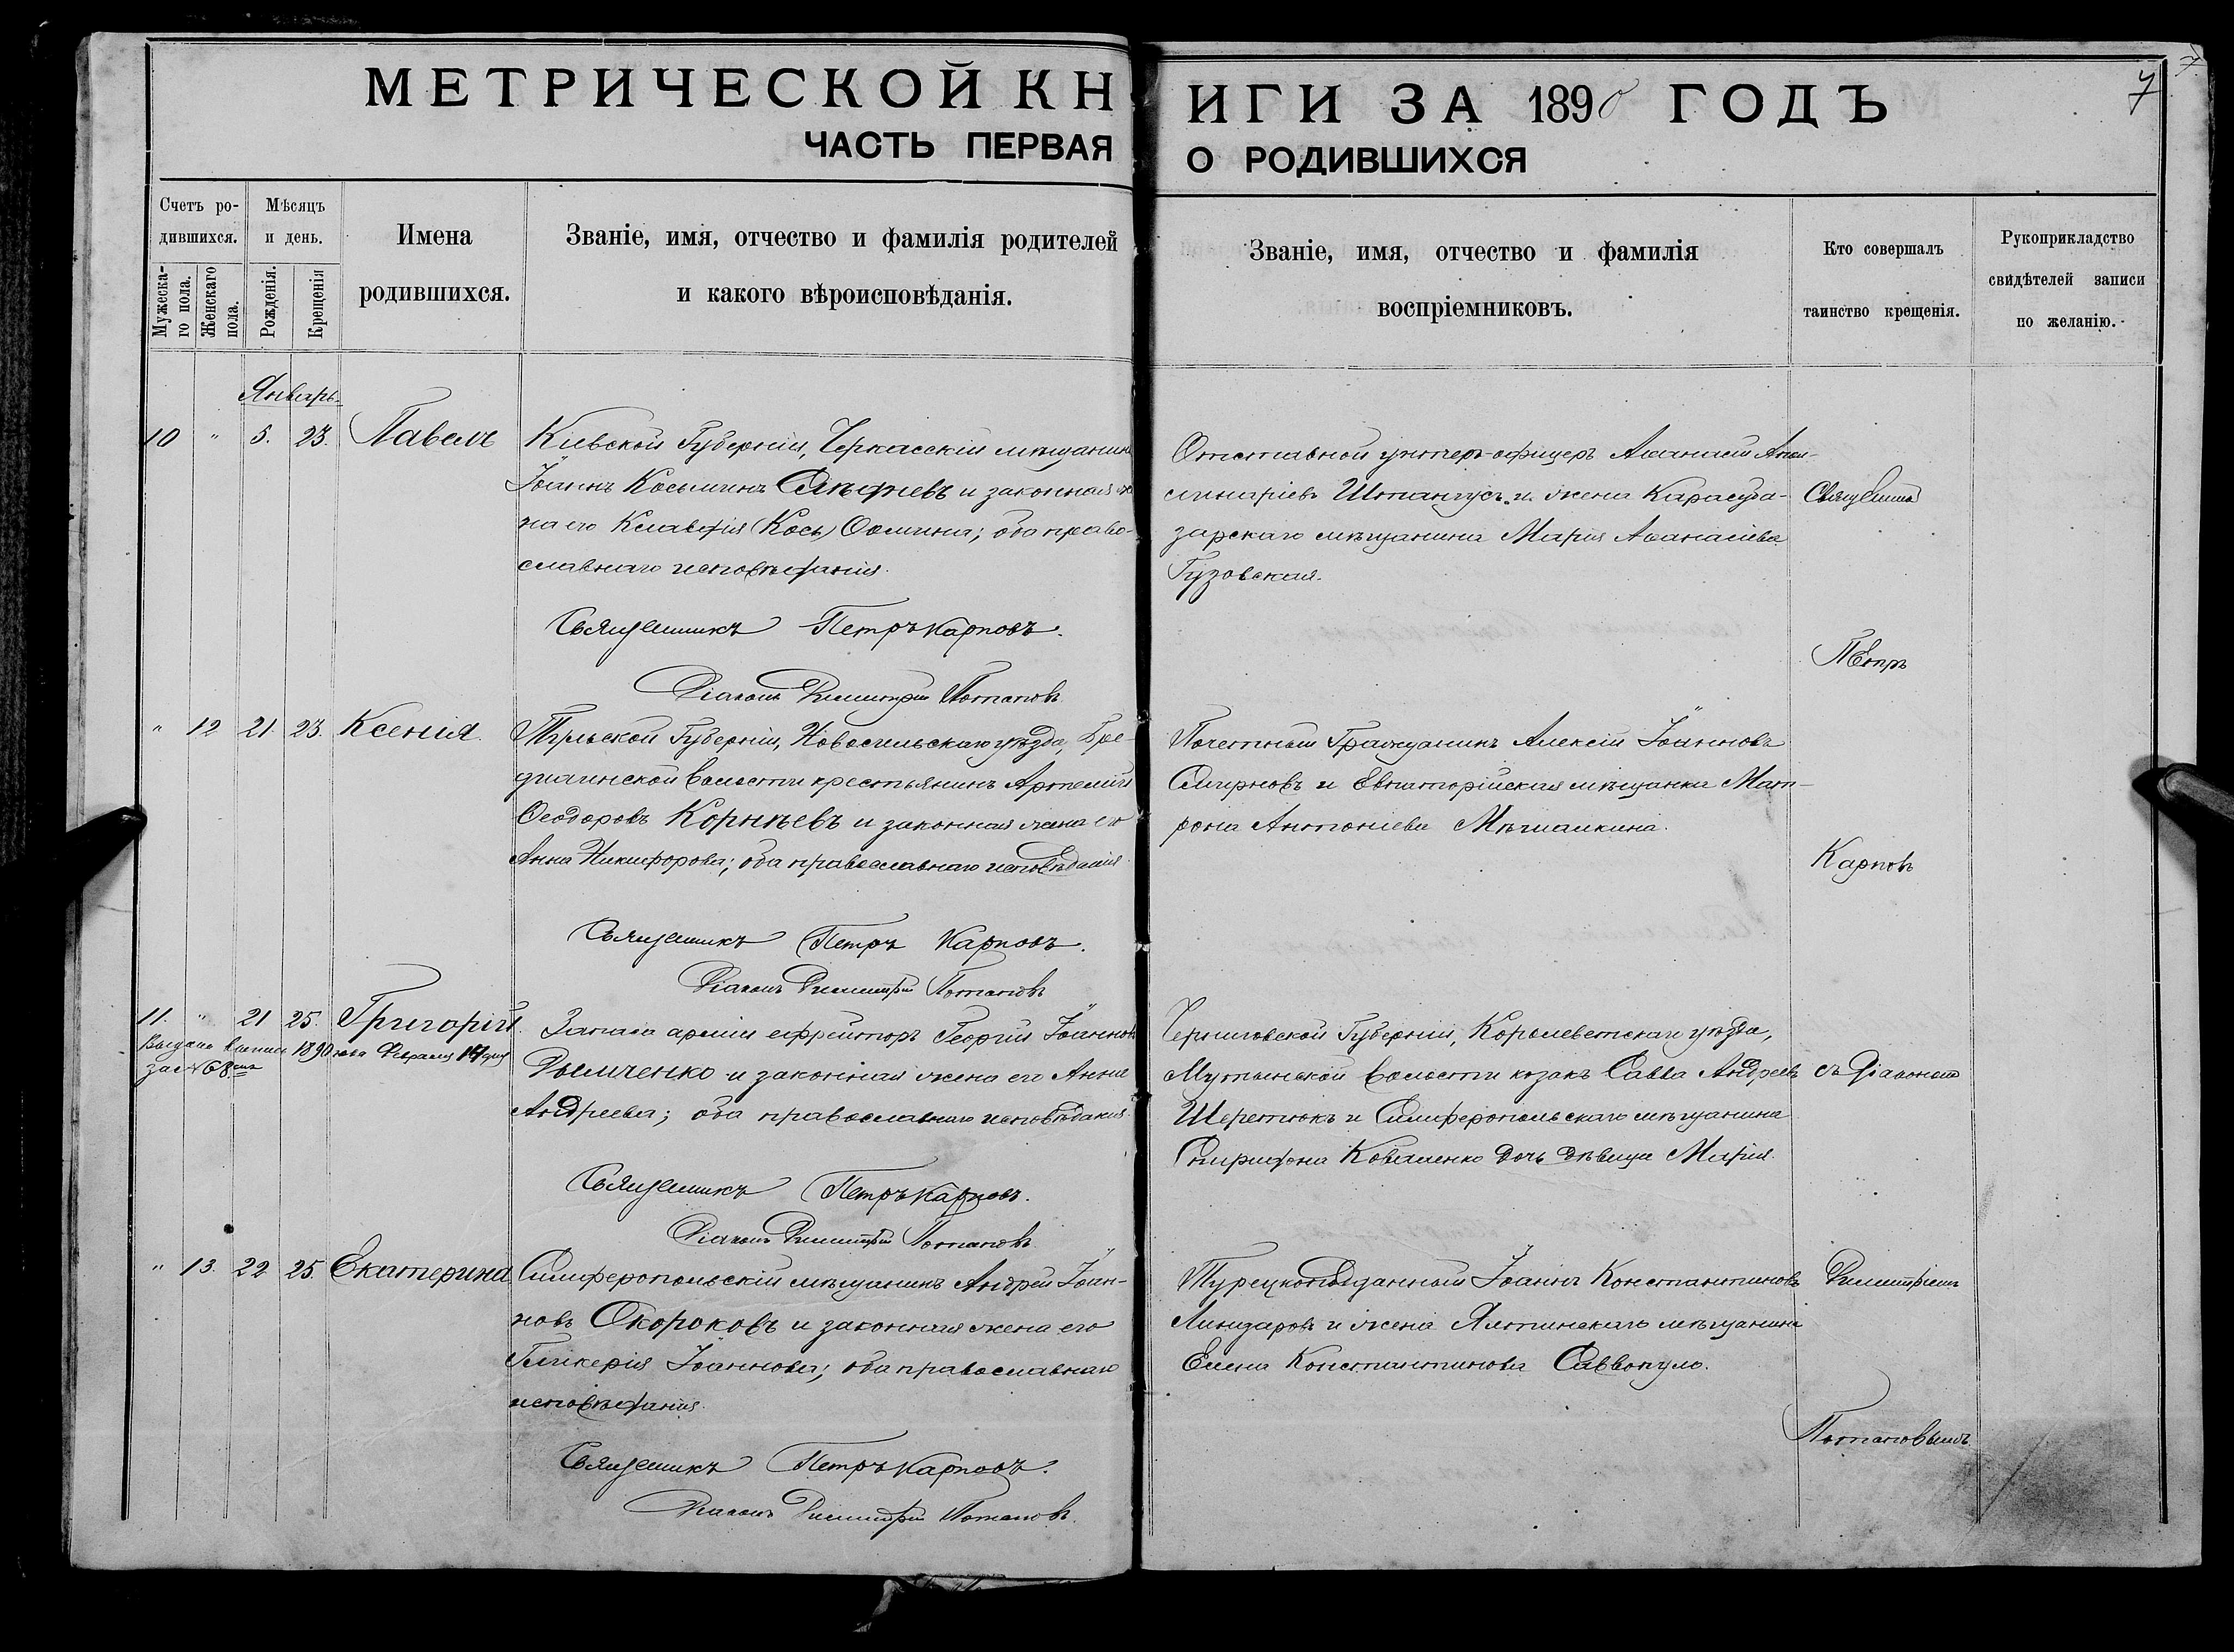 МЕТРИЧЕСКОЙ КНИГИ ЗА 1890 ГОДЪ
7
ЧАСТЬ ПЕРВАЯ О РОДИВШИХСЯ
Счетъ ро-
дившихся.
Мужеска-
го пола.
Женскаго
пола.
Мѣсяцъ
и день.
Рожденія.
Крещенія
Имена
родившихся.
Званіе, имя, отчество и фамилія родителей
и какого вѣроисповѣданія.
Званіе, имя, отчество и фамилія
воспріемниковъ.
Кто совершалъ
таинство крещенія.
Рукоприкладство
свидѣтелей записи
по желанію.
Январь.
10 " 5. 23. Павелъ
Кіевской Губерніи, Черкасскій мѣщанинъ
Іоаннъ Косьминъ и законная же-
на его Клавдія (Кось) Ѳомина; оба право-
славнаго исповѣданія.
Священникъ Петръ Карповъ.
Діаконъ Димитрій Потаповъ
Отставной унтеръ-офицеръ Аѳанасій Апол-
линаріевъ Штангусъ и жена Карасуба-
зарскаго мѣщанина Марія Аѳанасіева
Гузовская.
" 12 21. 23. Ксенія.
Тульской Губерніи, Новосильскаго уѣзда,
волости крестьянинъ Артемій
Ѳеодоровъ Корнѣевъ и законная жена его
Анна Никифорова; оба православнаго исповѣданія
Священникъ Петръ Карповъ.
Діаконъ Димитрій Потаповъ
Почетный Гражданинъ Алексій Іоанновъ
Смирновъ и Евпаторійская мѣщанка Мат-
рона Антоніева
11. " 21 25. Григорій.
Выдана выпись 1890 года Февраля 14 дня
за № 68
Запаса арміи ефрейторъ Георгій Іоанновъ
Дымченко и законная жена его Анна
Андреева; оба православнаго исповѣданія.
Священникъ Петръ Карповъ.
Діаконъ Димитрій Потаповъ
Черниговской Губерніи, Кролеветскаго уѣзда,
Мутынской волости козакъ Савва Андреевъ
Шеретюкъ и Симферопольскаго мѣщанина
Спиридона Коваленко дочь дѣвица Марія.
" 13. 22 25. Екатерина
Симферопольскій мѣщанинъ Андрей Іоан-
новъ Окороковъ и законная жена его
Гликерія Іоаннова; оба православнаго
исповѣданія.
Священникъ Петръ Карповъ.
Діаконъ Димитрій Потаповъ.
Турецкоподданный Іоаннъ Константиновъ
и жена Ялтинскаго мѣщанина
Елена Константинова Саввопуло.
Священникъ
Петръ
Карповъ
съ Діакономъ
Димитріемъ
Потаповымъ.